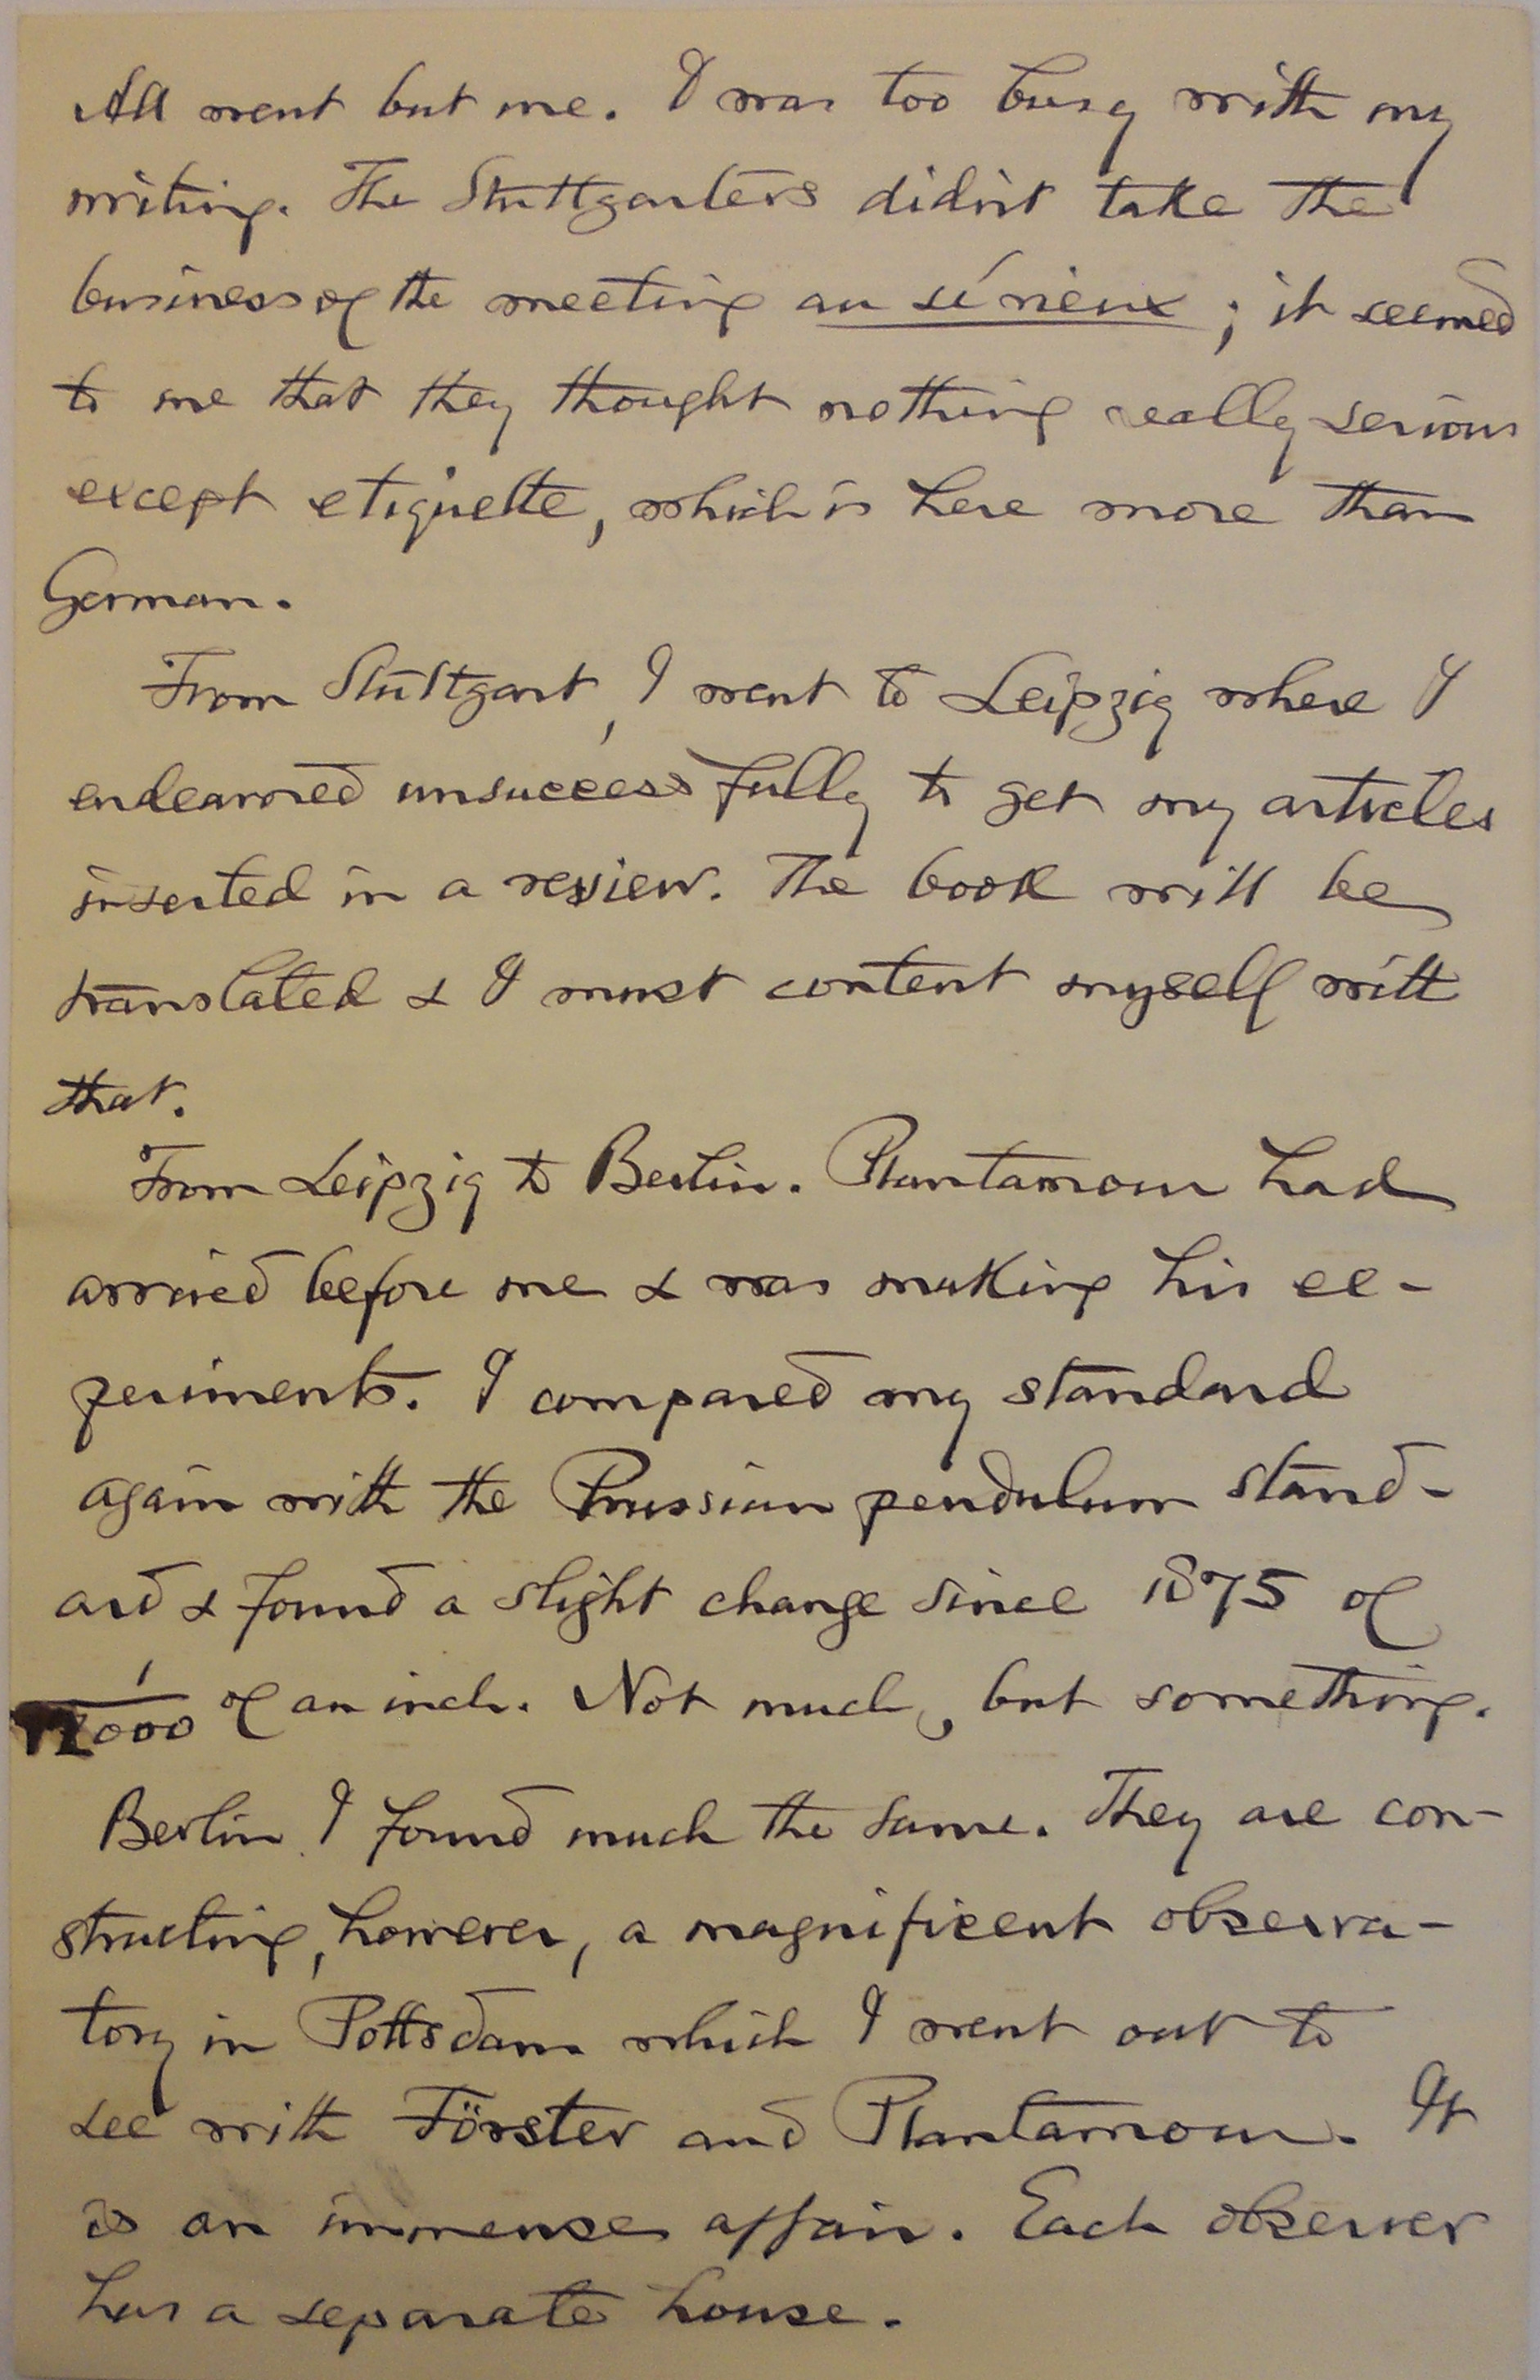 All went but me. I was too busy with my
writing. The Stuttgarters didn't take the
business of the meeting au sérieux; it seemed
to me that they thought nothing really serious
except etiquette, which is here more than
German.
From Stuttgart, I went to Leipzig where I
endeavored unsuccessfully to get my articles
inserted in a review. The book will be
translated & I must content myself with
that.
From Leipzig to Berlin. Plantamour had
arrived before me & was making his ex-
periments. I compared my standard
again with the Prussian pendulum stand-
ard & found a slight change since 1875 of
1/12000 of an inch. Not much, but something.
Berlin I found much the same. They are con-
structing, however, a magnificent observa-
tory in Pottsdam which I went out to
see with Förster and Plantamour. It
is an immense affair. Each observer
has a separate house.